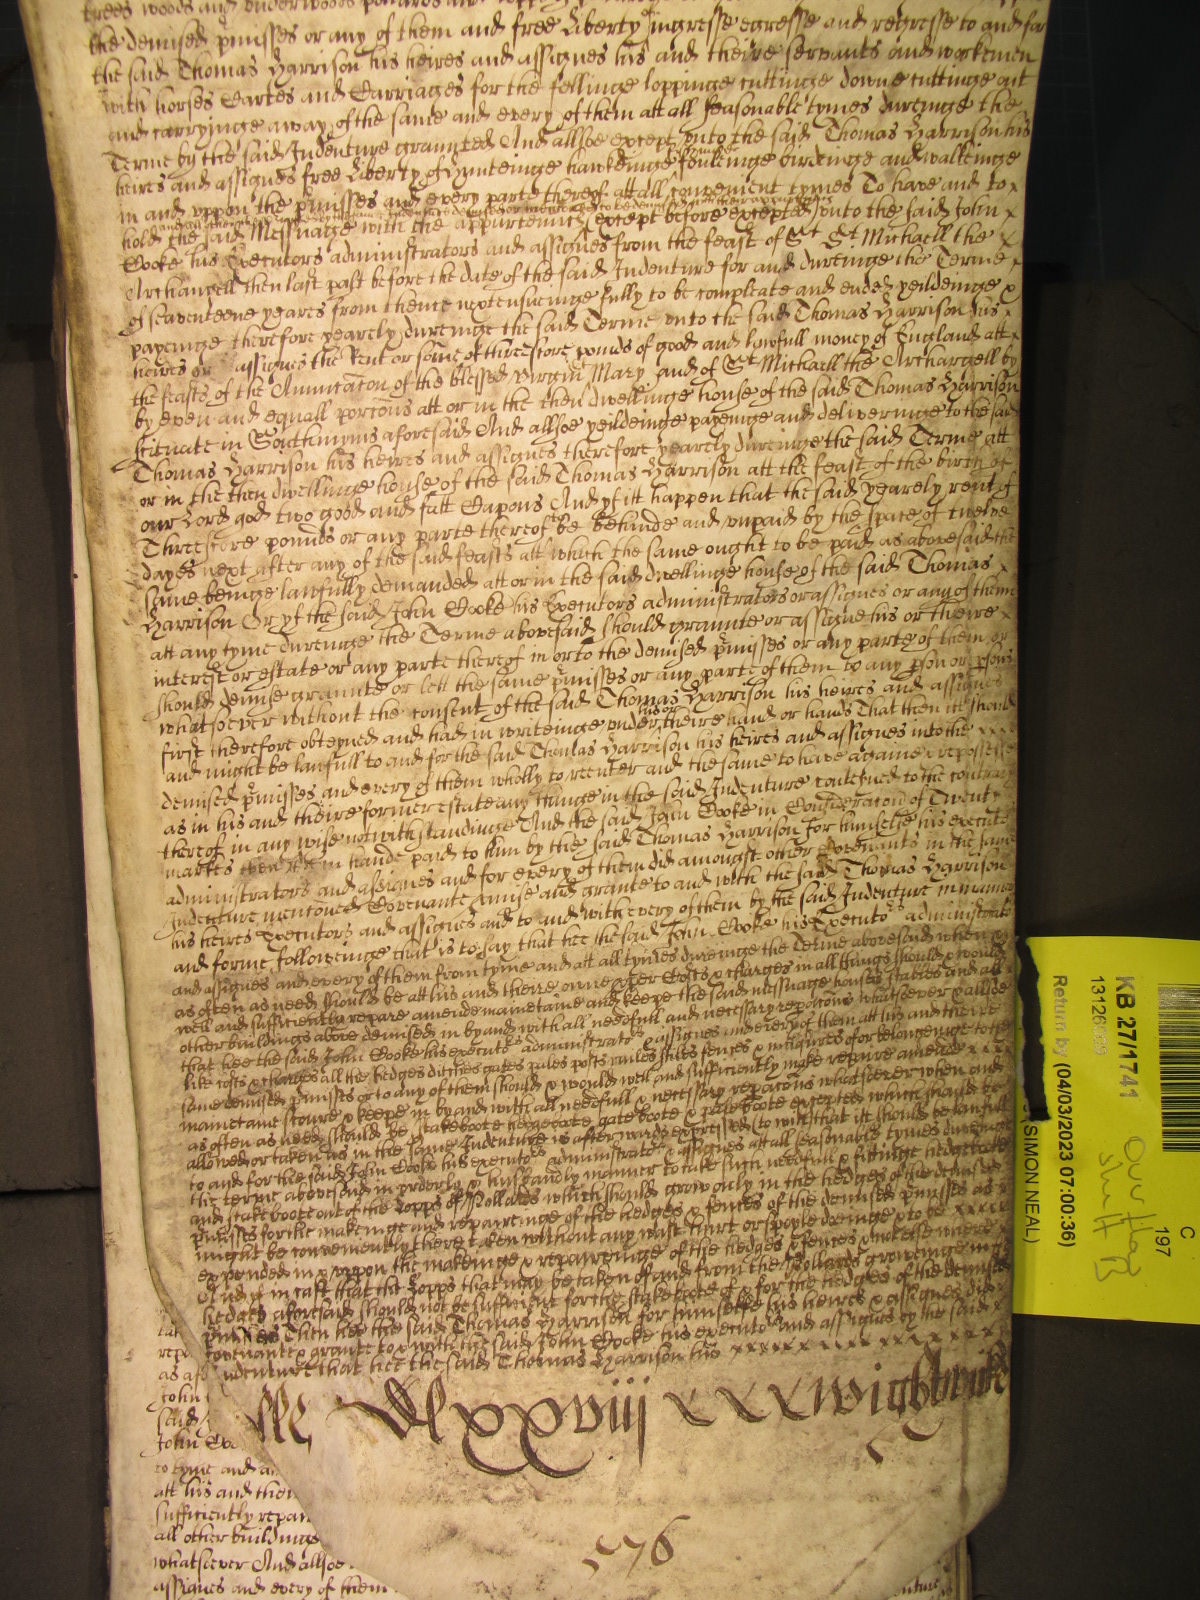 trees woods and underwoods
the demised pmisses or any of them and free Liberty ingresse egresse and regresse to and for
the said Thomas Harrison his heires and assignes his and theire servants and workemen
with horses Cartes and Carriages for the fellinge loppinge cuttinge downe cuttinge out
and carryinge away of the same and every of them att all seasonable tymes dureinge the
Terme by the said Indenture graunted And allsoe except unto the said Thomas Harrison his
heires and assignes free Liberty of Hunteinge hawkeinge fouleinge birdinge and walkeinge
in and uppon the pmisses and every parte thereof att all convenient tymes To have and to x
hold the said Messuage with the appurtennces except before excepted unto the said John x
Cooke his Executors administrators and assignes from the feast of St St Michaell the x
Archangell then last past before the date of the said Indenture for and dureinge the Terme x
of seaventeene yeares from thence next ensueinge fully to be compleate and ended yeildeinge x
payeinge therefore yearely dureinge the said Terme unto the said Thomas Harrison his x
heires or assignes the Rent or some of threescore pounds of good and lawfull money of England att x
the feasts of the Annuntacon of the blessed virgin Mary and of St Michaell the Archangell by
by even and equall porcons att or in the then dwellinge house of the said Thomas Harrison
scituate in Southmyms aforesaid And allsoe yeildeinge payeinge and delivereinge to the said
Thomas Harrison his heires and assignes therefore yearely dureinge the said Terme att
or in the then dwellinge house of the said Thomas Harrison att the feast of the birth of
our Lord god two good and fatt Capons And yf itt happen that the said yearely rent of
Threescore pounds or any parte thereof to be behinde and unpaid by the space of twelve
dayes next after any of the said feasts att which the same ought to be paid as abovesaid the
same beinge lawfully demanded att or in the said dwellinge house of the said Thomas x
Harrison Or yf the said John Cooke his Executors administrators or assignes or any of them
att any tyme dureinge the Terme abovesaid should graunte or assigne his or theire x
interest or estate or any parte thereof in or to the demised pmisses or any parte of them or
should demise graunte or lett the same pmisses or any parte of them to any pson or psons
whatsoever without the consent of the said Thomas Harrison his heires and assignes
first therefore obteyned and had in writeinge under his or theire hand or hands That then itt should
and might be lawfull to and for the said Thomas Harrison his heires and assignes into the x x x x
demised pmisses and every of them wholly to reenter and the same to have againe x repossesse
as in his and theire former estate any thinge in the said Indenture conteyned to the contrary
thereof in any wise notwithstandinge And the said John Cooke in Consideracon of Twenty
markes in hande paid to him by the said Thomas Harrison for himselfe his execut
administrators and assignes and for every of them did amongst other Covenants in the same
Indenture mentoned Covenante pmise and grante to and with the said Thomas Harrison
his heires Executors and assignes and to and with every of them by the said Indenture in manner
and forme followeinge that is to say that hee the said John Cooke his Executors administrators
and assignes and every of them from tyme and att all tymes dureinge the Terme abovesaid when x
as often as need should be att his and theire owne pper Costs x charges in all things should x would
well and sufficiently repaire amende maintaine and keepe the said messuage houses stables and all x
other buildings above demised in by and with all needfull and necessary repacons whatsoever x allsoe
that hee the said John Cooke his executors administrators x assignes and every of them att his and theire
like costs x charges all the hedges ditches gates pales posts railes stiles fences x inclosures of or belonginge to the
same demised pmisses or to any of them should x would well and sufficiently make repaire amende x x x
maintaine scoure x keepe in by and with all needfull x necessary repacons whatsoever when and
as often as need should be stakeboote hedgeboote gateboote x paleboote excepted which should be
allowed or taken as in the same Indenture is afterwards expressed (to witt) that itt should be lawfull
to and for the said John Cooke his executors administrators x assignes att all seasonable tymes dureinge
the terme abovesaid in orderly x husbandly manner to take such needfull x fittinge hedgeboote
and stakeboote out of the Lopps of Pollards which should grow only in the hedges of the demised
pmisses for the makeinge and repaireinge of the hedges x fences of the demised pmisses as x
might be conveniently there taken without any wast hurt or spoyle doeinge x to be x x x x
expended in x uppon the makeinge x repaireinge of the hedges x fences x not else where x
And yf in case that the Lopps that may be taken of and from the Pollards groweinge in the
hedges aforesaid should not be sufficient for the stakeboote of x for the hedges of the demised
pmisses Then hee the said Thomas Harrison for himselfe his heires x assignes did x
Covenante x grante to x with the said John Cooke his executors and assignes by the said x
Indenture that hee the said Thomas Harrison his x x x x x x x x x x x x
Dlxxviij x x x Wightwike
576
repa
as afo
John
said
John Co
to tyme and a
att his and their
sufficiently repair
all other buildings
whatsoever And allsoe
assignes and every of them
KB 27/1741
Return by (04/03/2023 07:00:36)
(SIMON NEAL)
C
197